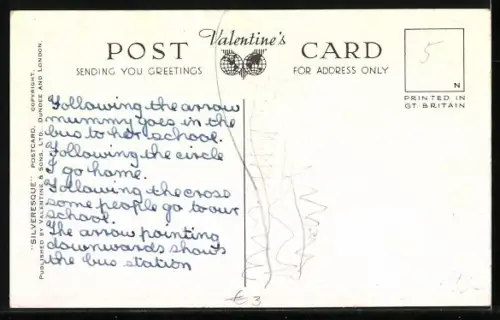 Valentine's
POST CARD
SENDING YOU GREETINGS
FOR ADDRESS ONLY
5
N
PRINTED IN
GT. BRITAIN
"SILVERESQUE" POSTCARD. COPYRIGHT.
PUBLISHED BY VALENTINE & SONS, LTD., DUNDEE AND LONDON.
Following the arrow
mummy goes in the
bus to her school.
Following the circle
I go home.
Following the cross
some people go to our
school.
The arrow pointing
downwards shows
the bus station
€3